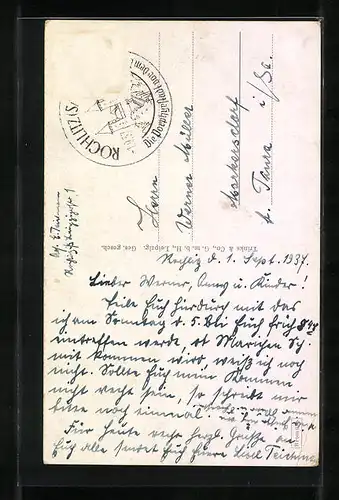 ROCHLITZ (SA.)
Die Porphyrstadt
Herrn
Werner Müller
Markersdorf
b. Taura i/Sa.
Trinks & Co., G. m. b. H., Leipzig. Ges. gesch.
Rochlitz d. 1. Sept. 1937.
Lieber Werner, u. Kinder!
Teile Euch hierdurch mit das
ich am Sonntag d. 5. bei Euch früh
eintreffen werde, ob Mariechen Sch.
mit kommen wird weiß ich noch
nicht. Sollte Euch mein Kommen
nicht recht sein, so schreibt mir
bitte noch einmal
Für heute recht herzl. Grüße an
Euch alle sendet Euch Eure